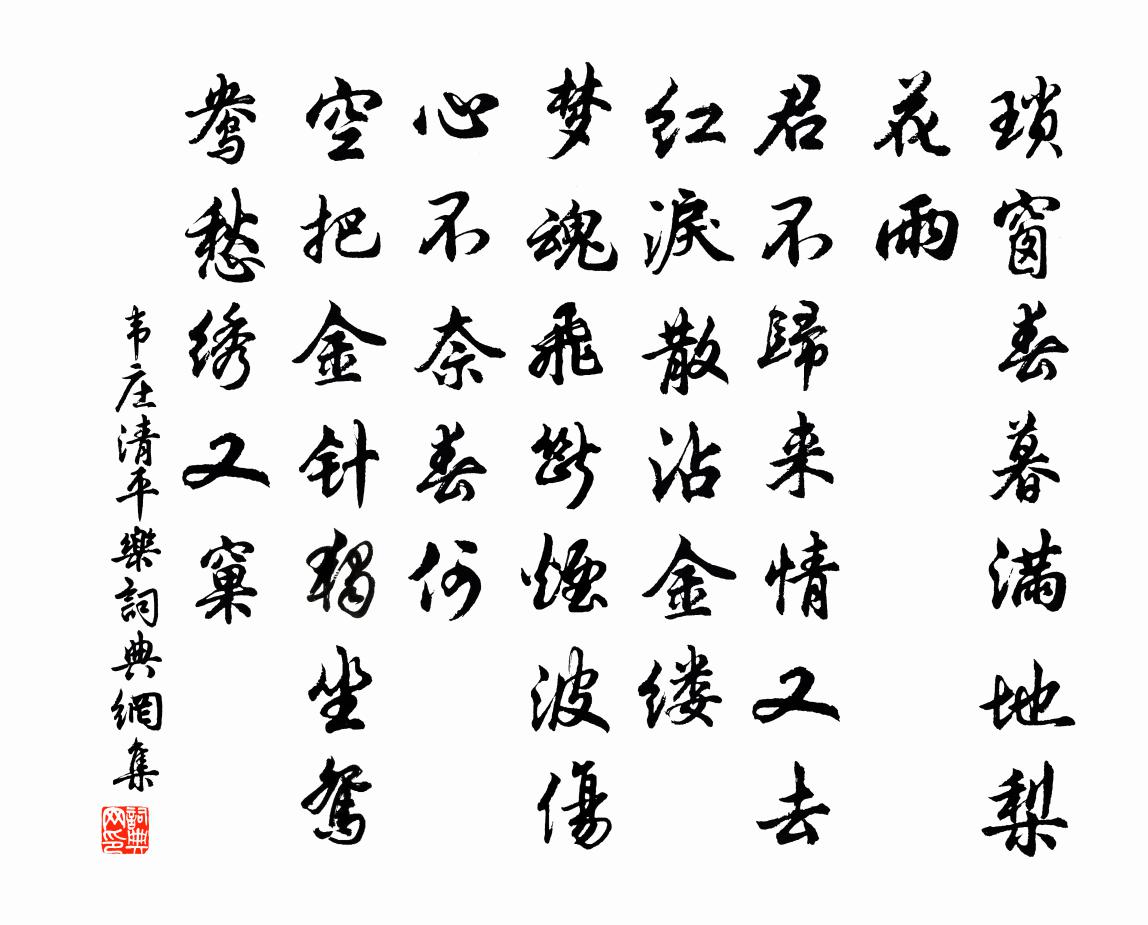 琐窗春暮满地梨
花雨
君不歸来情又去
红淚散沾金缕
梦魂飛断煙波傷
心不奈春何
空把金针独坐鸳
鸯愁绣又窠
韦庄清平樂詞典網集
詞典网印